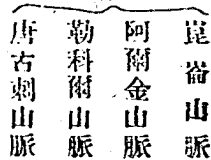 崑崙山脈
阿爾金山脈
勒科爾山脈
唐古剌山脈